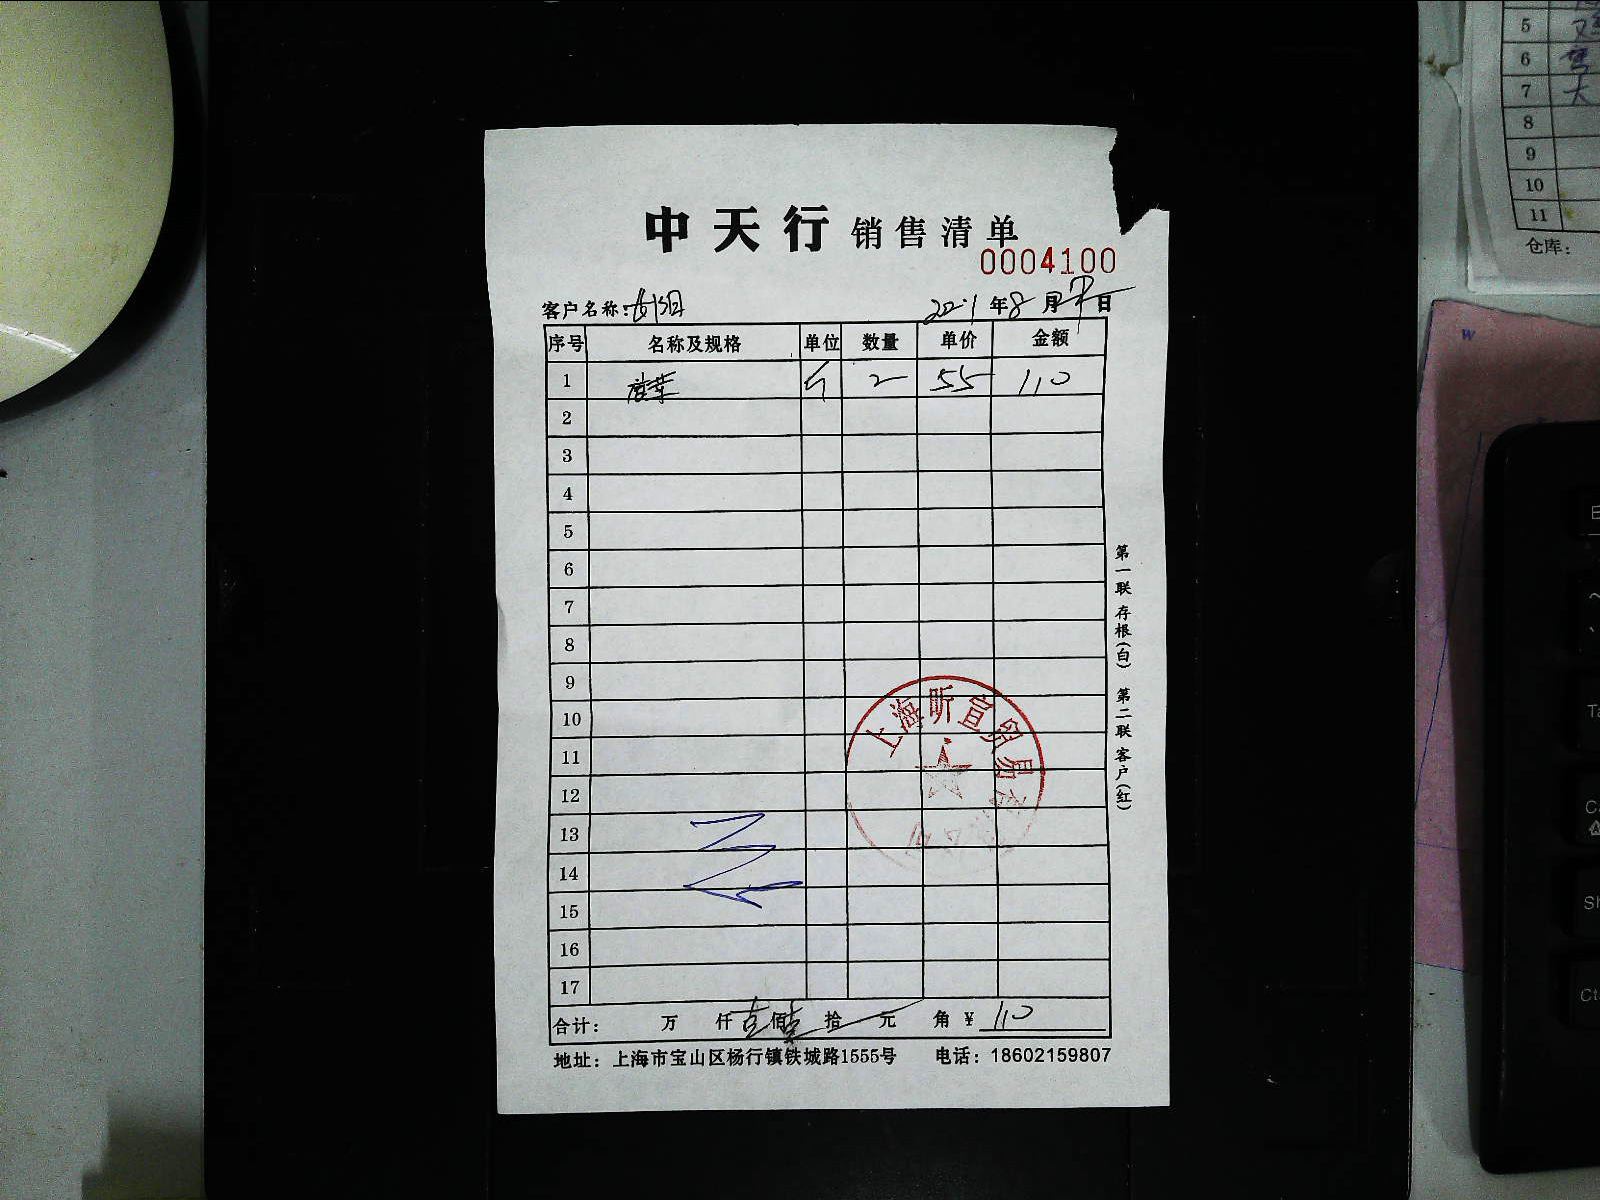 中天行 销售清单
0004100
客户名称: 2021年8月 日
序号 名称及规格 单位 数量 单价 金额
1 个 2 55 110
2
3
4
5
6
7
8
9
10
11
12
13
14
15
16
17
合计: 万 仟 壹 佰 壹 拾 元 角 ¥ 110
地址: 上海市宝山区杨行镇铁城路1555号 电话: 18602159807
第一联 存根(白) 第二联 客户(红)
上海昕宣贸易有限公司
5
6
7 大
8
9
10
11
仓库: